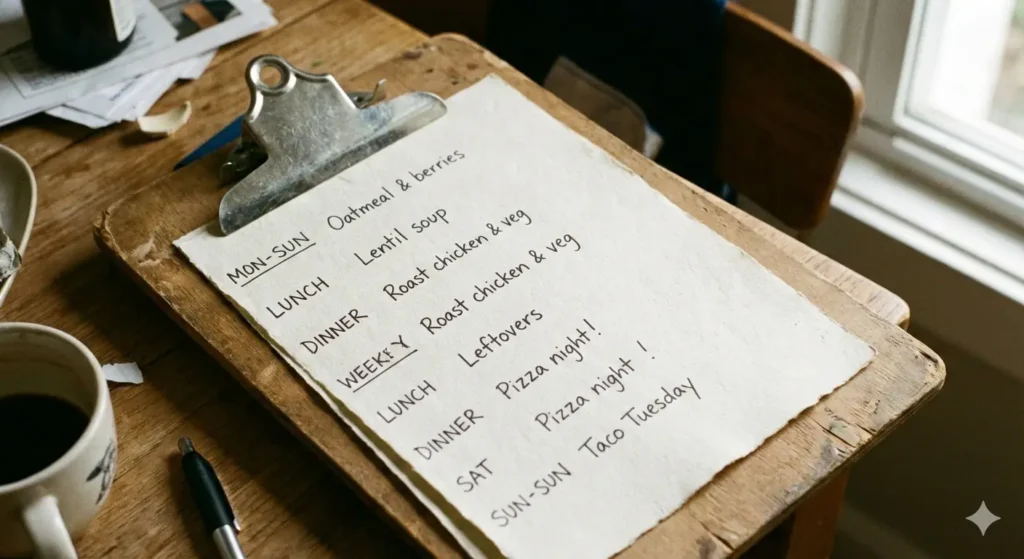 MON-SUN Oatmeal & berries
LUNCH Lentil soup
DINNER Roast chicken & veg
WEEKEY Roast chicken & veg
LUNCH Leftovers
DINNER Pizza night!
SAT Pizza night !
SUN-SUN Taco Tuesday